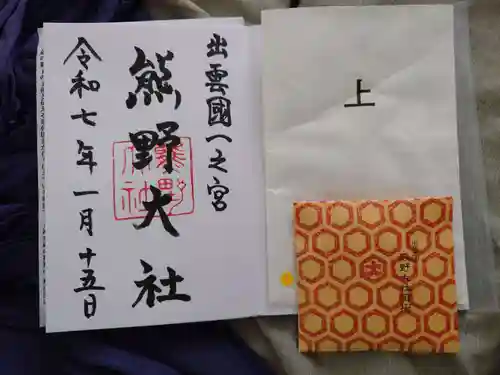 出雲國一之宮
熊野大社
令和七年一月十五日
熊野大社
上